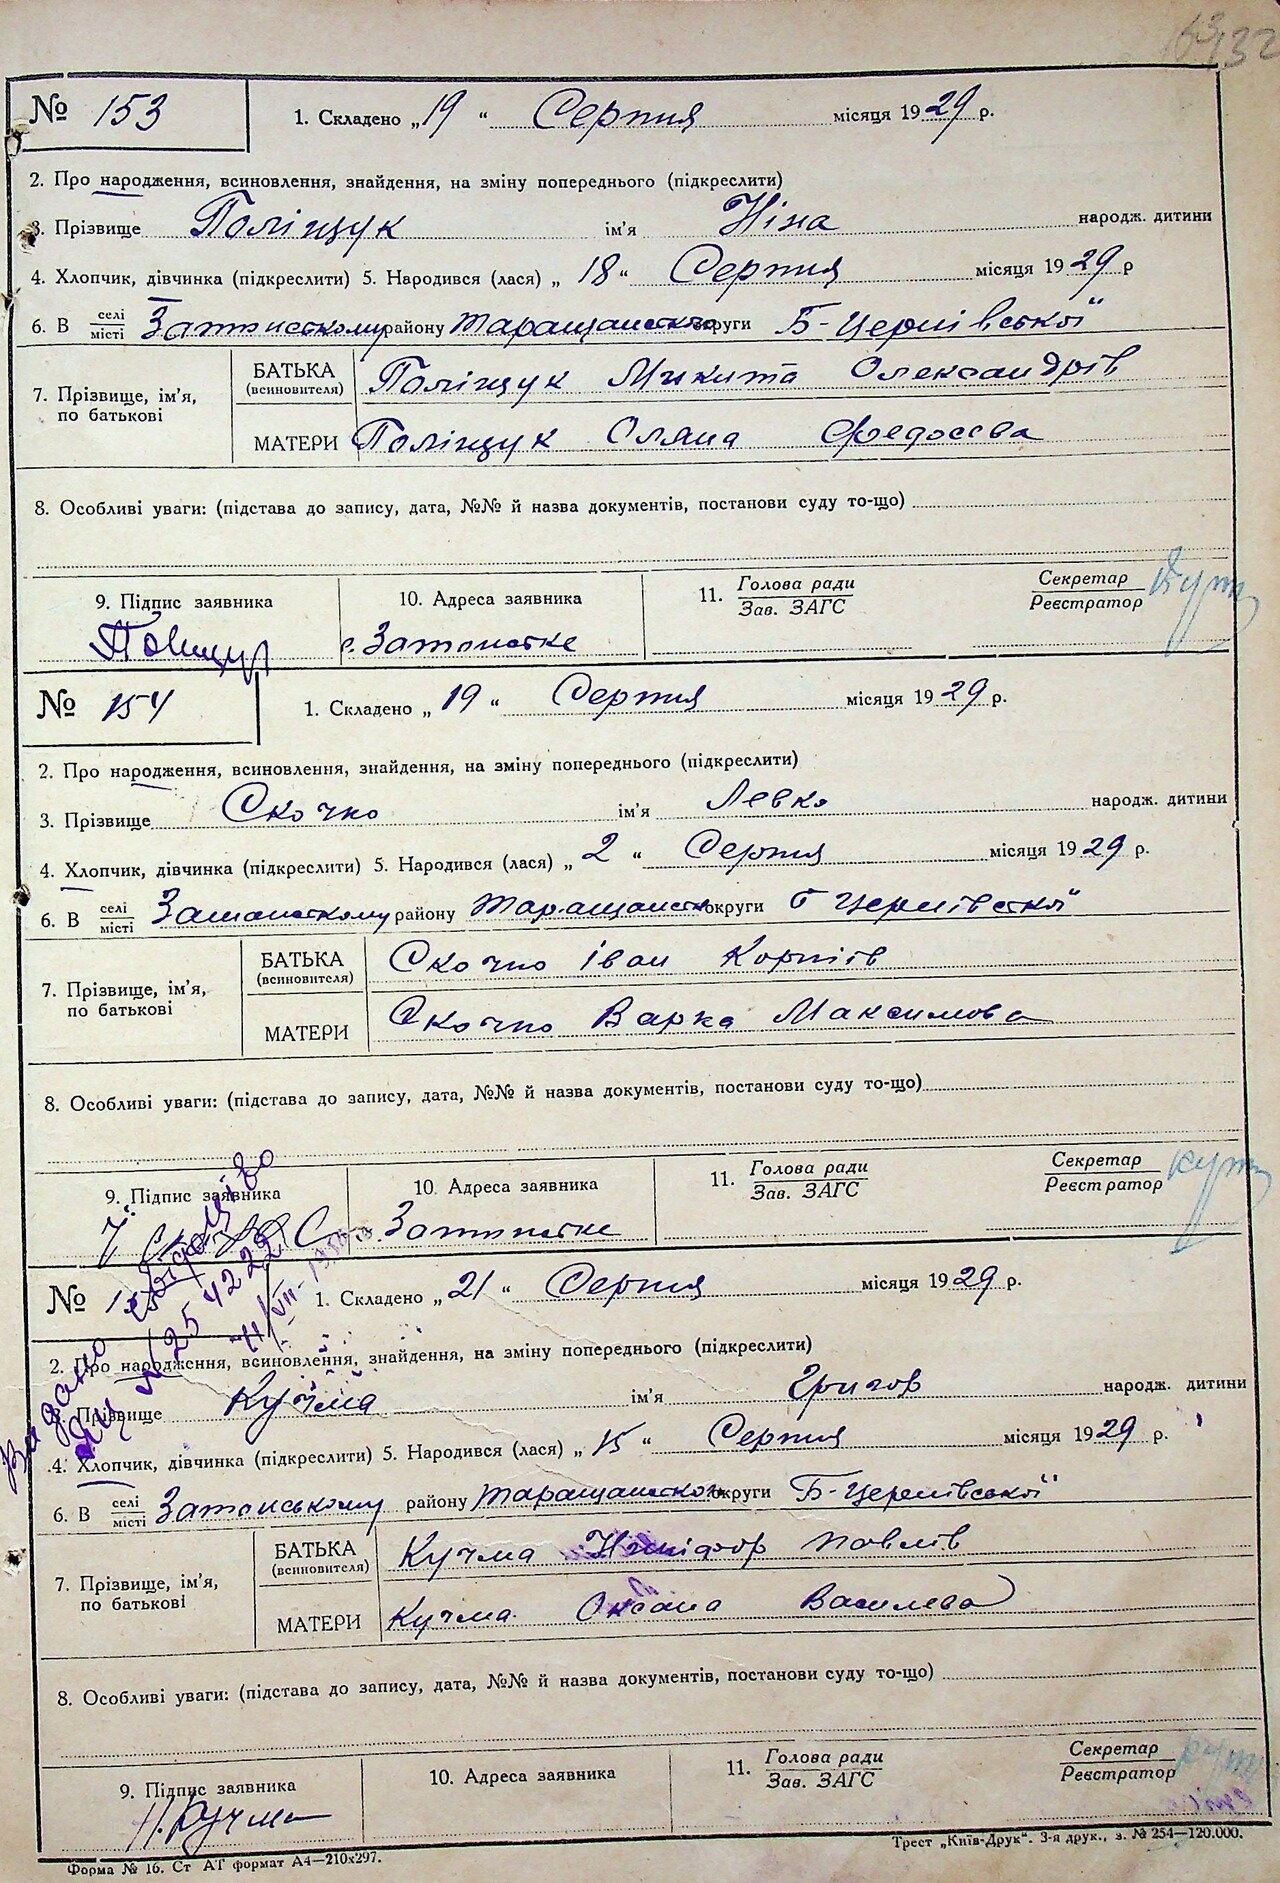 132
№ 153 1. Складено „19“ Серпня місяця 1929 р.
2. Про народження, всиновлення, знайдення, на зміну попереднього (підкреслити)
3. Прізвище Поліщук ім'я Ніна народж. дитини
4. Хлопчик, дівчинка (підкреслити) 5. Народився (лася) „18“ Серпня місяця 1929 р
6. В селі/місті району округи Б-Церківської
7. Прізвище, ім'я, по батькові
БАТЬКА (всиновителя) Поліщук Микита Олександрів
МАТЕРИ Поліщук Оляна Федосєва
8. Особливі уваги: (підстава до запису, дата, №№ й назва документів, постанови суду то-що)
9. Підпис заявника 10. Адреса заявника 11. Голова ради/Зав. ЗАГС Секретар/Реєстратор
№ 154 1. Складено „19“ Серпня місяця 1929 р.
2. Про народження, всиновлення, знайдення, на зміну попереднього (підкреслити)
3. Прізвище Скочко ім'я Левко народж. дитини
4. Хлопчик, дівчинка (підкреслити) 5. Народився (лася) „2“ Серпня місяця 1929 р.
6. В селі/місті району округи Б Церківської
7. Прізвище, ім'я, по батькові
БАТЬКА (всиновителя) Скочко Іван Корніїв
МАТЕРИ Скочко Варка Максимова
8. Особливі уваги: (підстава до запису, дата, №№ й назва документів, постанови суду то-що)
9. Підпис заявника 10. Адреса заявника 11. Голова ради/Зав. ЗАГС Секретар/Реєстратор
№ 1. Складено „21“ Серпня місяця 1929 р.
2. Про народження, всиновлення, знайдення, на зміну попереднього (підкреслити)
3. Прізвище Кучма ім'я Григор народж. дитини
4. Хлопчик, дівчинка (підкреслити) 5. Народився (лася) „15“ Серпня місяця 1929 р.
6. В селі/місті Затонському району округи Б-Церківської
7. Прізвище, ім'я, по батькові
БАТЬКА (всиновителя) Кучма Никіфор Павлів
МАТЕРИ Кучма Оксана Василева
8. Особливі уваги: (підстава до запису, дата, №№ й назва документів, постанови суду то-що)
9. Підпис заявника 10. Адреса заявника 11. Голова ради/Зав. ЗАГС Секретар/Реєстратор
Н. Кучма
Форма № 16. Ст АТ формат А4—210x297. Трест „Київ-Друк“. 3-я друк., з. № 254—120.000.